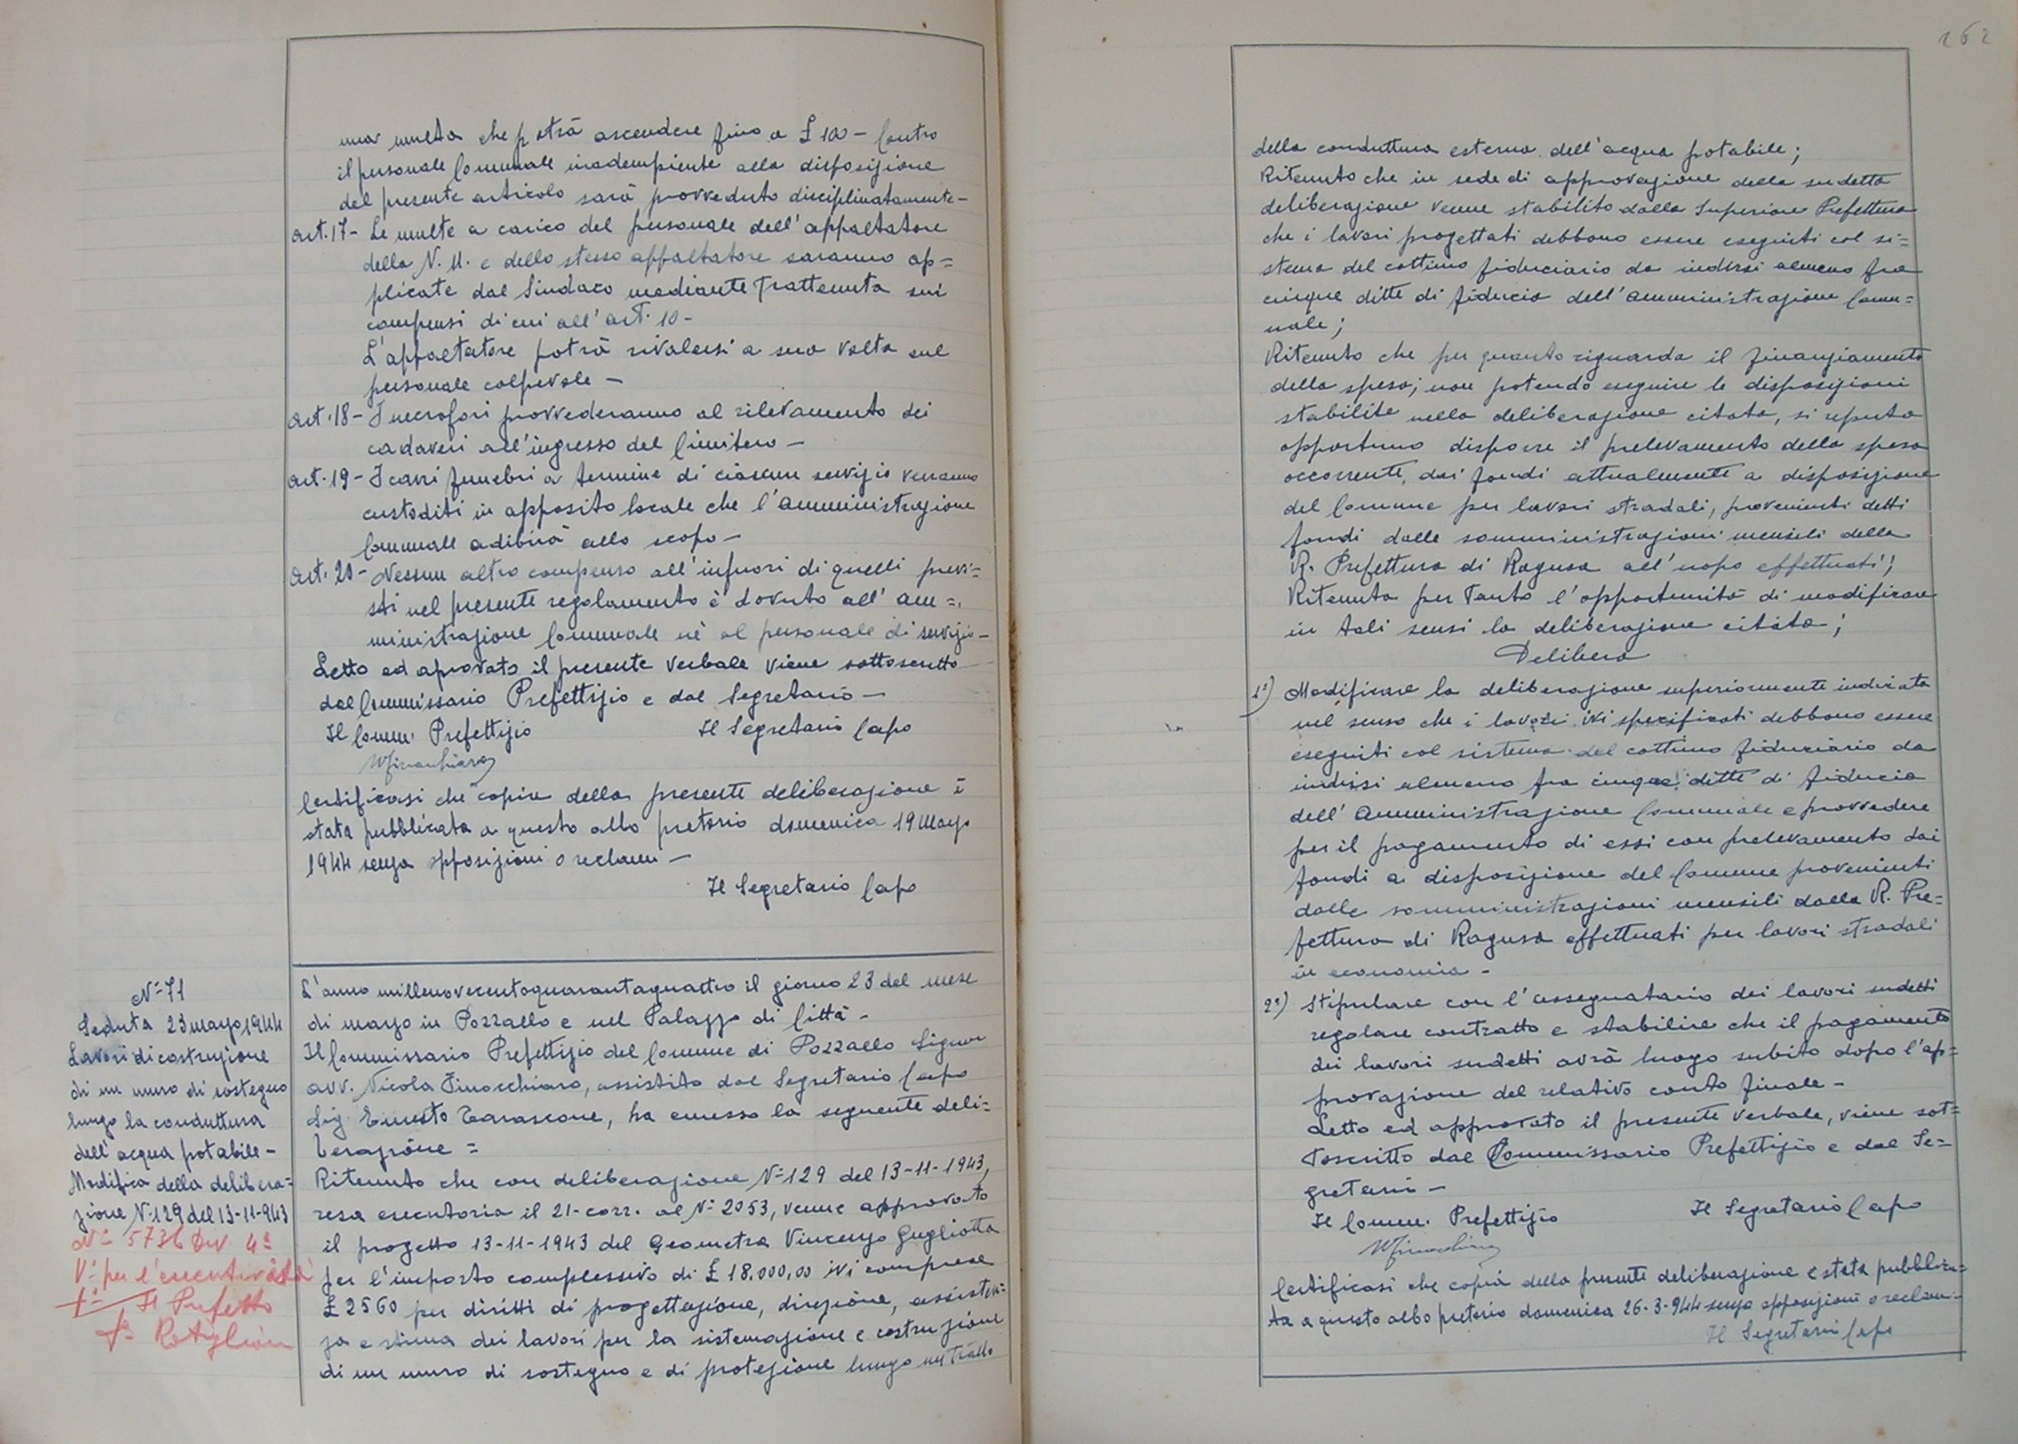 una multa che potrà ascendere fino a £ 100 - Contro
il personale Comunale inadempiente alla disposizione
del presente articolo sarà provveduto disciplinatamente -
Art. 17 - Le multe a carico del personale dell'appaltatore
della N. U. e dello stesso appaltatore saranno ap=
plicate dal Sindaco mediante trattenuta sui
compensi di cui all'art. 10 -
L'appaltatore potrà rivalersi a sua volta sul
personale colpevole -
Art. 18 - I necrofori provvederanno al rilevamento dei
cadaveri all'ingresso del Cimitero -
Art. 19 - I carri funebri a termine di ciascun servizio verranno
custoditi in apposito locale che l'Amministrazione
Comunale adibirà allo scopo -
Art. 20 - Nessun altro compenso all'infuori di quelli previ=
sti nel presente regolamento è dovuto all'am=
ministrazione Comunale nè al personale di servizio -
Letto ed aprovato il presente verbale viene sottoscritto
dal Commissario Prefettizio e dal Segretario -
Il Comm. Prefettizio Il Segretario Capo
NFinocchiaro
Certificasi che copia della presente deliberazione è
stata pubblicata a questo albo pretorio domenica 19 Marzo
1944 senza opposizioni o reclami -
Il Segretario Capo
N° 71
Seduta 23 marzo 1944
Lavori di costruzione
di un muro di sostegno
lungo la conduttura
dell'acqua potabile -
Modifica della delibera=
zione N. 129 del 13-11-943
N° 5736 Div 4ª
V° per l'esecutorietà
Il Prefetto
L'anno millenovecentoquarantaquattro il giorno 23 del mese
di marzo in Pozzallo e nel Palazzo di Città -
Il Commissario Prefettizio del Comune di Pozzallo Signor
avv. Nicola Finocchiaro, assistito dal Segretario Capo
Sig. Ernesto Tarascone, ha emesso la seguente deli=
berazione =
Ritenuto che con deliberazione N° 129 del 13-11-1943,
resa esecutoria il 21-corr. al N° 2053, venne approvato
il progetto 13-11-1943 del Geometra Vincenzo Gugliotta
per l'importo complessivo di £ 18.000,00 ivi comprese
£ 2560 per diritti di progettazione, direzione, assisten=
za e stima dei lavori per la sistemazione e costruzione
di un muro di sostegno e di protezione lungo un tratto
262
della conduttura esterna dell'acqua potabile;
Ritenuto che in sede di approvazione della sudetta
deliberazione venne stabilito dalla Superiore Prefettura
che i lavori progettati debbono essere eseguiti col si=
stema del cottimo fiduciario da indirsi almeno fra
cinque ditte di fiducia dell'Amministrazione Comu=
nale;
Ritenuto che per quanto riguarda il finanziamento
della spesa; non potendo eseguire le disposizioni
stabilite nella deliberazione citata, si reputa
opportuno disporre il prelevamento della spesa
occorrente, dai fondi attualmente a disposizione
del Comune per lavori stradali, provenienti detti
fondi dalle somministrazioni mensili della
R. Prefettura di Ragusa all'uopo effettuati;
Ritenuta per tanto l'opportunità di modificare
in tali sensi la deliberazione citata;
Delibera
1°) Modificare la deliberazione superiormente indicata
nel senso che i lavori ivi specificati debbono essere
eseguiti col sistema del cottimo fiduciario da
indirsi almeno fra cinque ditte di fiducia
dell'Amministrazione Comunale e provvedere
per il pagamento di essi con prelevamento dai
fondi a disposizione del Comune provenienti
dalle somministrazioni mensili dalla R. Pre=
fettura di Ragusa effettuati per lavori stradali
in economia -
2°) Stipulare con l'assegnatario dei lavori sudetti
regolare contratto e stabilire che il pagamento
dei lavori sudetti avrà luogo subito dopo l'ap=
provazione del relativo conto finale -
Letto ed approvato il presente verbale, viene sot=
toscritto dal Commissario Prefettizio e dal Se=
gretario -
Il Comm. Prefettizio Il Segretario Capo
NFinocchiaro
Certificasi che copia della presente deliberazione è stata pubblica=
ta a questo albo pretorio domenica 26-3-944 senza opposizioni o reclami -
Il Segretario Capo